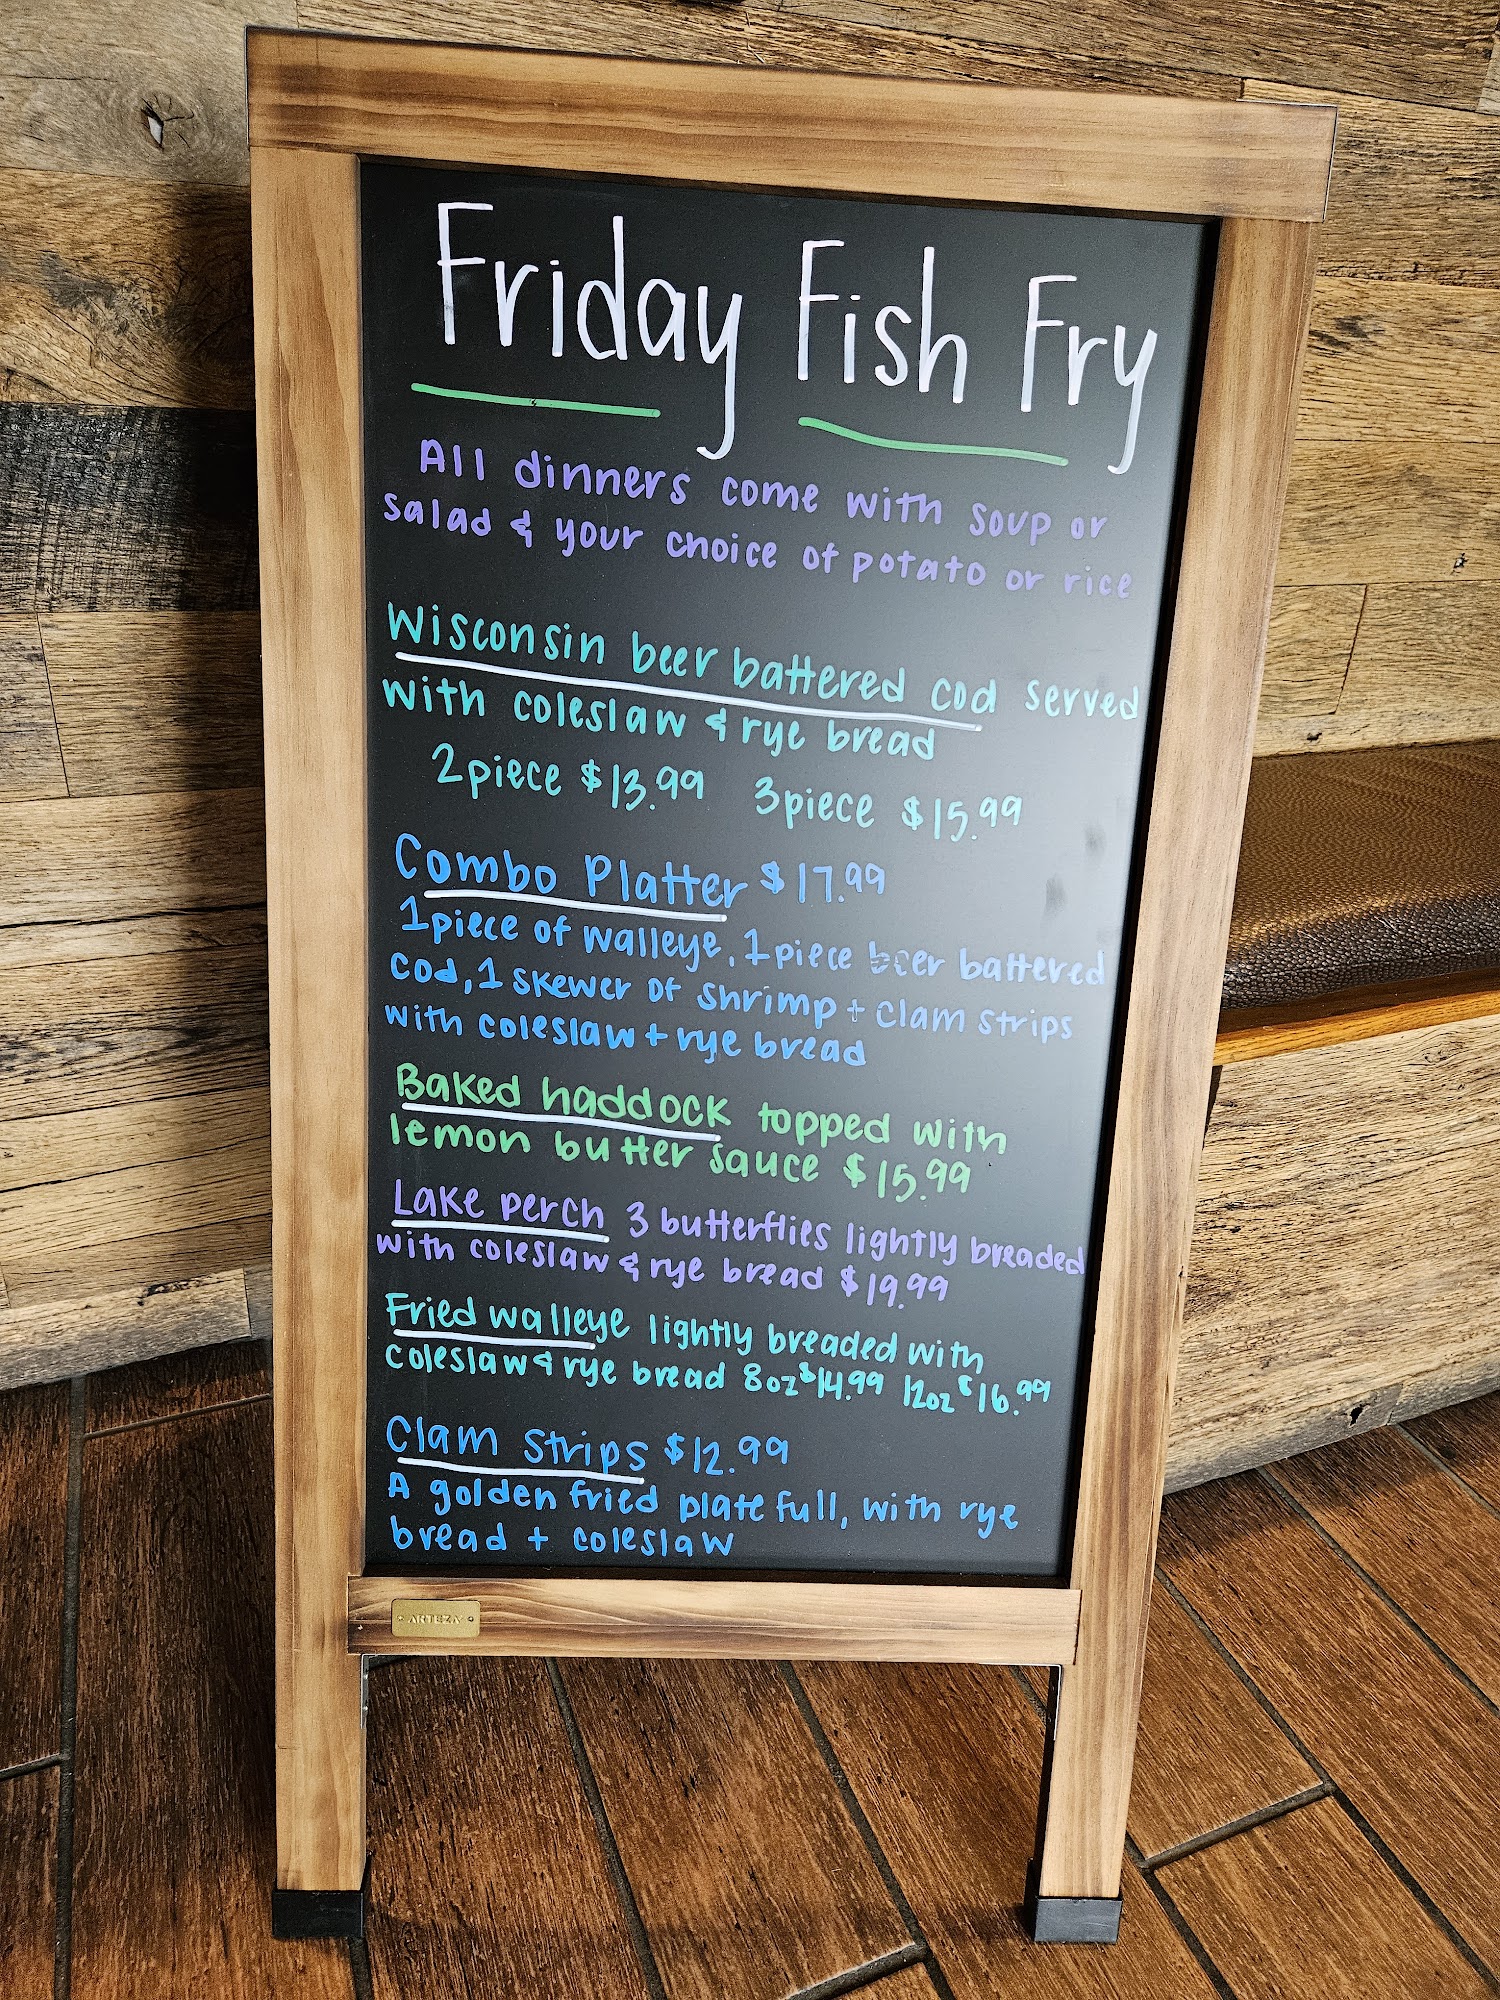 Friday Fish Fry
All dinners come with soup or
salad & your choice of potato or rice
Wisconsin beer battered cod served
with coleslaw & rye bread
2piece $13.99 3piece $15.99
Combo Platter $17.99
1piece of walleye, 1piece beer battered
cod, 1 skewer of shrimp + clam strips
with coleslaw + rye bread
Baked haddock topped with
lemon butter sauce $15.99
Lake perch 3 butterflies lightly breaded
with coleslaw & rye bread $19.99
Fried walleye lightly breaded with
coleslaw & rye bread 8oz $14.99 12oz $16.99
Clam strips $12.99
A golden fried plate full, with rye
bread + coleslaw
ARTEZA